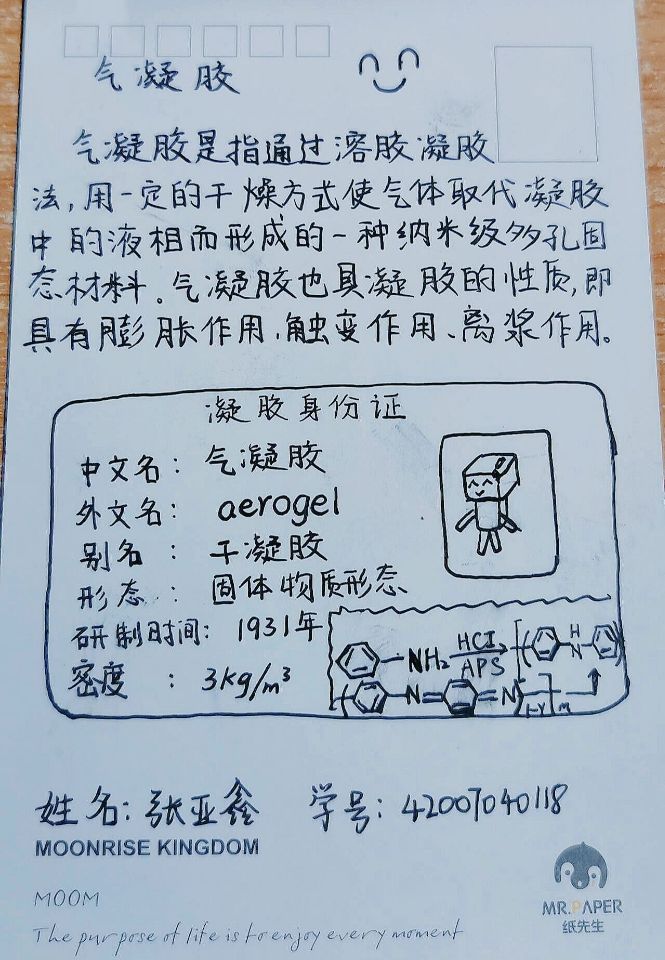 气凝胶
气凝胶是指通过溶胶凝胶
法,用一定的干燥方式使气体取代凝胶
中的液相而形成的一种纳米级多孔固
态材料。气凝胶也具凝胶的性质,即
具有膨胀作用、触变作用、离浆作用。
凝胶身份证
中文名: 气凝胶
外文名: aerogel
别名: 干凝胶
形态: 固体物质形态
研制时间: 1931年
密度: 3kg/m³
NH₂ HCl APS N H
N N 1-y m
姓名: 张亚鑫 学号: 42007040118
MOONRISE KINGDOM
MOOM
The purpose of life is to enjoy every moment
MR.PAPER
纸先生